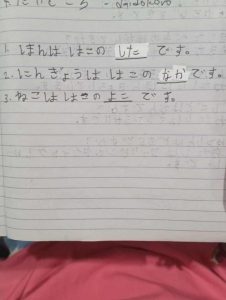 1. しまんは はこの した です。
2. にんぎょうは はこの なか です。
3. ねこは はこの よこ です。